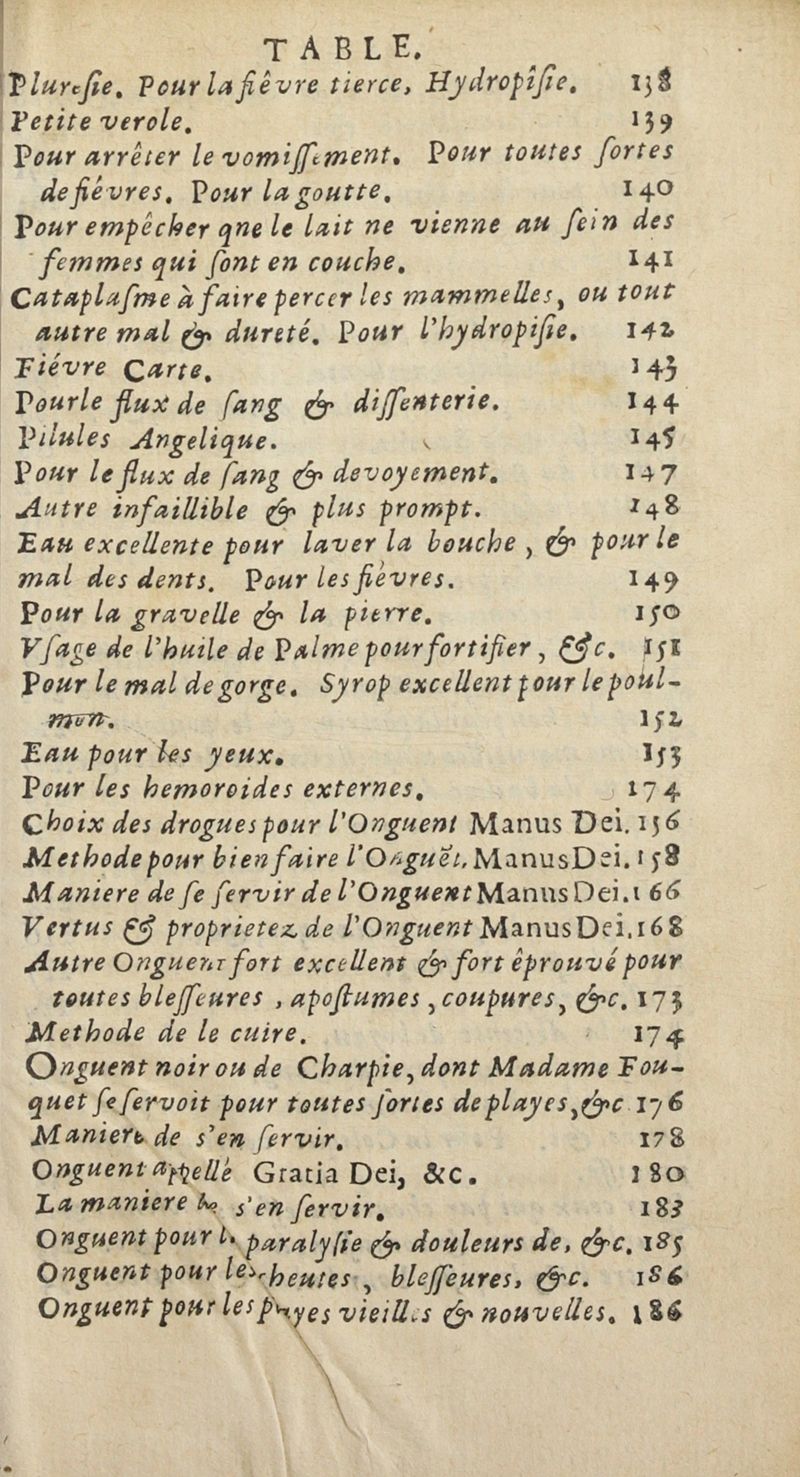 TABLE.
Pluresie. Pour la fiêvre tierce, Hydropîsie. 138
Petite verole. 139
Pour arrêter le vomissement. Pour toutes sortes
de fiévres. Pour la goutte. 140
Pour empêcher qne le lait ne vienne au sein des
femmes qui sont en couche. 141
Cataplasme à faire percer les mammelles, ou tout
autre mal & dureté. Pour l'hydropisie. 142
Fiévre Carte. 143
Pour le flux de sang & dissenterie. 144
Pilules Angelique. 145
Pour le flux de sang & devoyement. 147
Autre infaillible & plus prompt. 148
Eau excellente pour laver la bouche, & pour le
mal des dents. Pour les fièvres. 149
Pour la gravelle & la pierre. 150
Vsage de l'huile de Palme pour fortifier, &c. 151
Pour le mal de gorge. Syrop excellent pour le poul-
mon. 152
Eau pour les yeux. 153
Pour les hemoroides externes. 174
Choix des drogues pour l'Onguent Manus Dei. 156
Methode pour bien faire l'Onguët, Manus Dei. 158
Maniere de se servir de l'Onguent Manus Dei. 166
Vertus & proprietez de l'Onguent Manus Dei. 168
Autre Onguent fort excellent & fort êprouvé pour
toutes blesseures, apostumes, coupures, &c. 173
Methode de le cuire. 174
Onguent noir ou de Charpie, dont Madame Fou-
quet se servoit pour toutes sortes de playes, &c 176
Maniere de s'en servir. 178
Onguent appellé Gratia Dei, &c. 180
La maniere s'en servir. 183
Onguent pour paralysie & douleurs de, &c. 185
Onguent pour les heutes, blesseures, &c. 186
Onguent pour les vieilles & nouvelles. 186